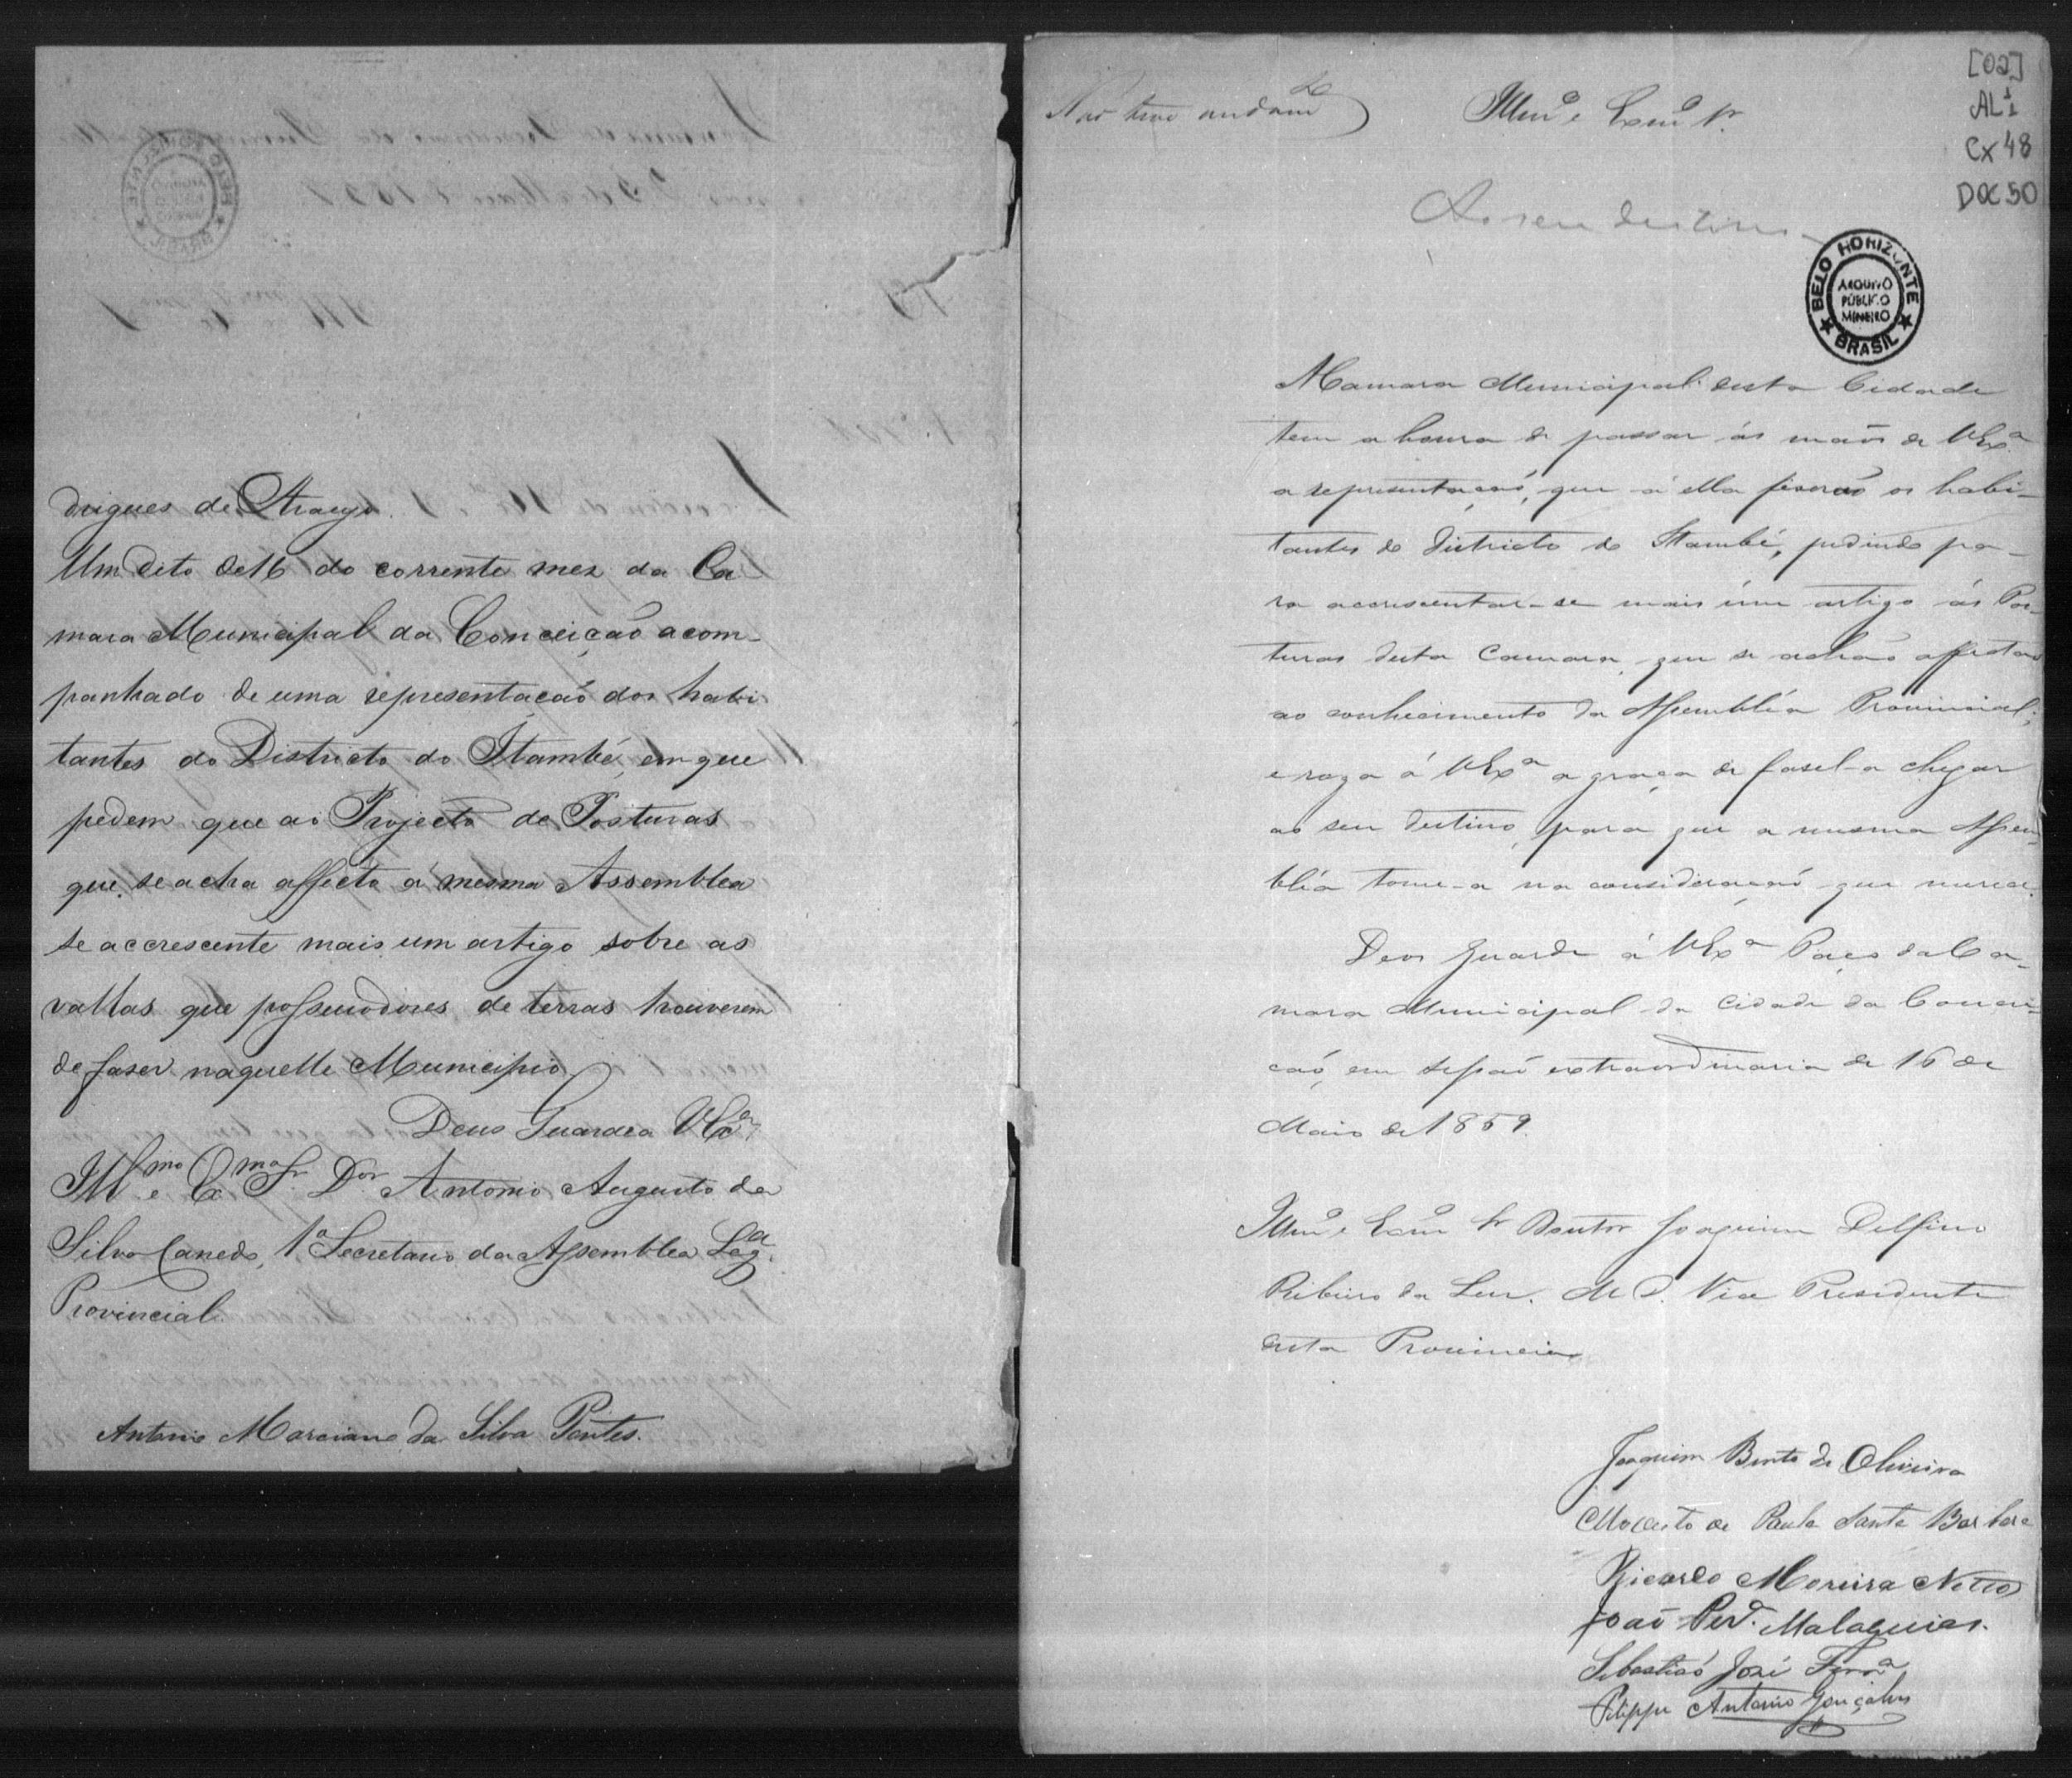 drigues de Araujo.
Um dito de 16 do corrente mez da Ca
mara Municipal da Conceição acom-
panhado de uma representação dos habi
tantes do Districto do Itambé, em que
pedem que ao Projecto de Posturas
que se acha affecto á mesma Assemblea
se accrescente mais um artigo sobre as
vallas que possuidores de terras houverem
de faser naquelle Municipio.
Deus Guarde a V Exª
Illmo e Exmo Sr. Dor Antonio Augusto da
Silva Canedo, 1º Secretario da Assemblea Lega
Provincial.
Antonio Marciano da Silva Pontes.
[02]
AL 1
Cx 48
DOC 50
Não teve andamto
Illmº e Exmº Sr.
Ao seu destino
BELO HORIZONTE
ARQUIVO
PÚBLICO
MINEIRO
BRASIL
A Camara Municipal desta Cidade
tem a honra de passar ás mãos de V Exª
a representação, que á ella fiserão os habi-
tantes do Districto do Itambé, pedindo pa-
ra accrescentar-se mais um artigo ás Pos-
turas desta Camara, que se achão affectas
ao conhecimento da Assembléa Provincial;
e roga á V Exª a graça de fasel-a chegar
ao seu destino, para que a mesma Assem-
bléa tome-a na consideração que merecer.
Deos guarde á V Exª Paço da Ca-
mara Municipal da Cidade da Concei-
ção, em sessão extraordinaria de 16 de
Maio de 1859.
Illmº e Exmº Sr Doutor Joaquim Delfino
Ribeiro da Luz. M. D. Vice Presidente
desta Provincia
Joaquim Bento de Oliveira
Modesto de Paula Santa Barbara
Ricardo Moreira Netto
João Perª. Malaquias.
Sebastião José Ferrª
Filippe Antonio Gonçalves